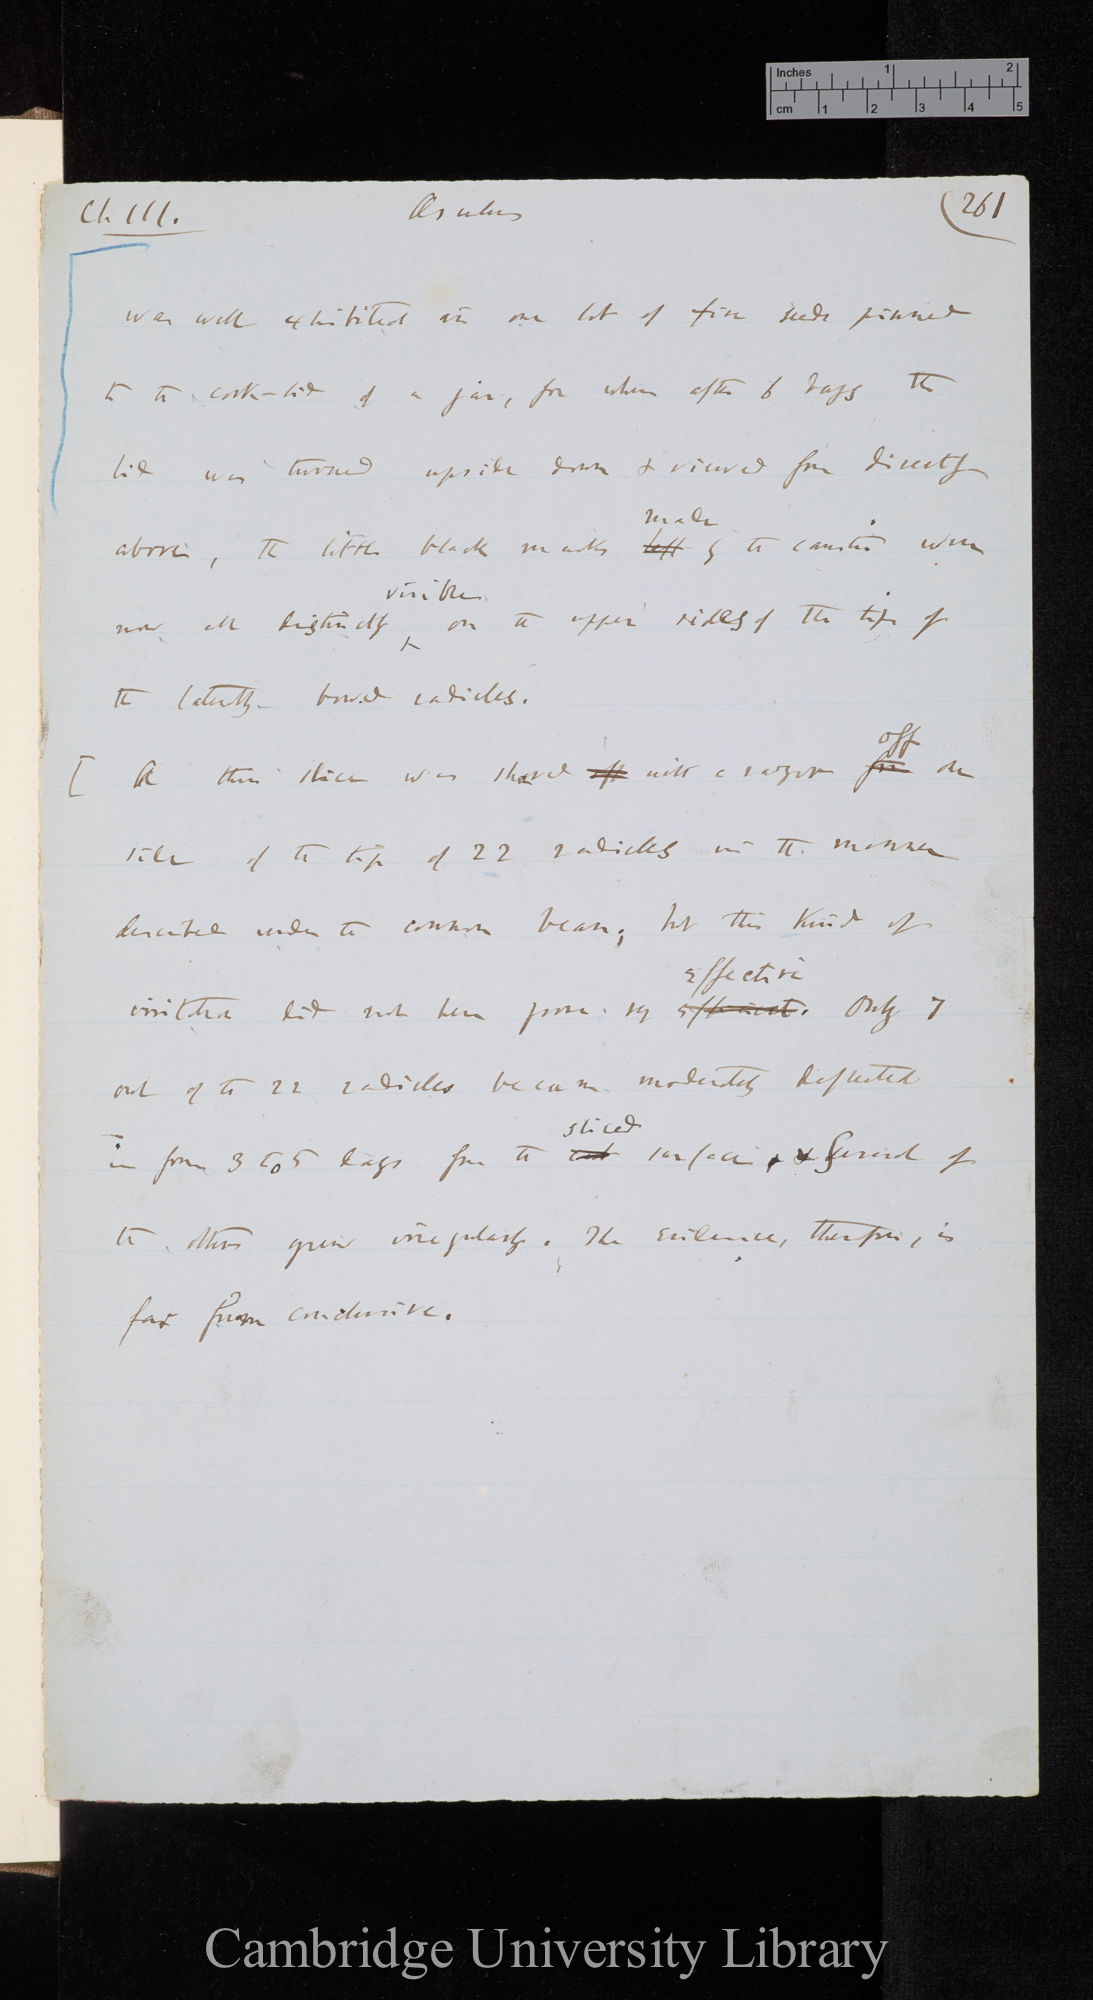 Inches 1 2
cm 1 2 3 4 5
Ch III. Æsculus (261
was well exhibited in one lot of five seeds pinned
to the cork-lid of a jar, for when after 6 days the
lid was turned upside down & viewed from directly
made
above, the little black marks left by the caustic were
visible
now all distinctly on the upper sides of the tips of
the laterally bowed radicles.
off
[ A thin slice was shaved off with a razor from one
side of the tip of 22 radicles in the manner
described under the common bean; but this kind of
effective
irritation did not here prove very efficient. Only 7
out of the 22 radicles became moderately deflected
sliced
in from 3 to 5 days from the cut surface, & several of
the others grew irregularly. The evidence, therefore, is
far from conclusive.
Cambridge University Library